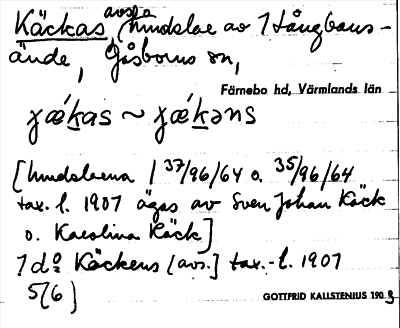 Käckas, avsta hundslae av 7 Långbans-
ände, Gåsborns sn,
Färnebo hd, Värmlands län
ɣǽkas ~ ɣǽkəns
[hundslaena 1 37/96/64 o. 35/96/64
tax. l. 1907 ägas av Sven Johan Käck
o. Karolina Käck]
7 do Käckens [avs.] tax.-l. 1907
5(6)
GOTTFRID KALLSTENIUS 190 9